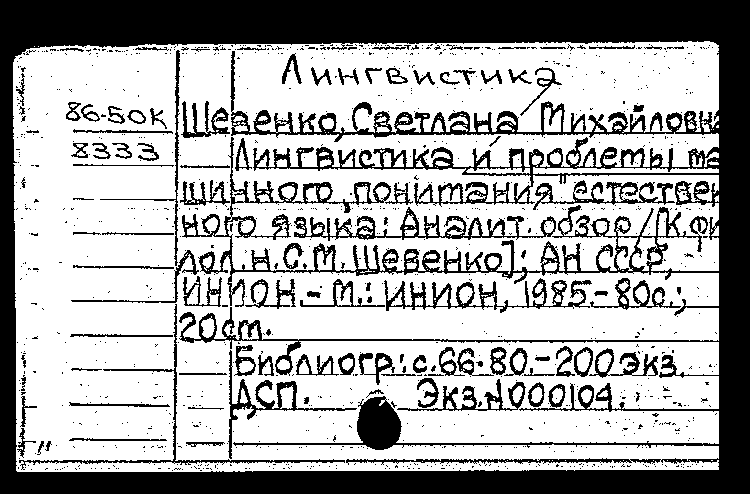 Лингвистика
86-50К
Шевенко, Светлана Михайловна
8333
Лингвистика и проблемы ма
шинного „понимания" естествен
ного языка: Аналит. обзор / [К. фи
лол. н. С. М. Шевенко]; АН СССР,
ИНИОН. - М.: ИНИОН, 1985. - 80с.;
20 см.
Библиогр.: с. 66-80. - 200 экз.
ДСП. Экз. N 000104.